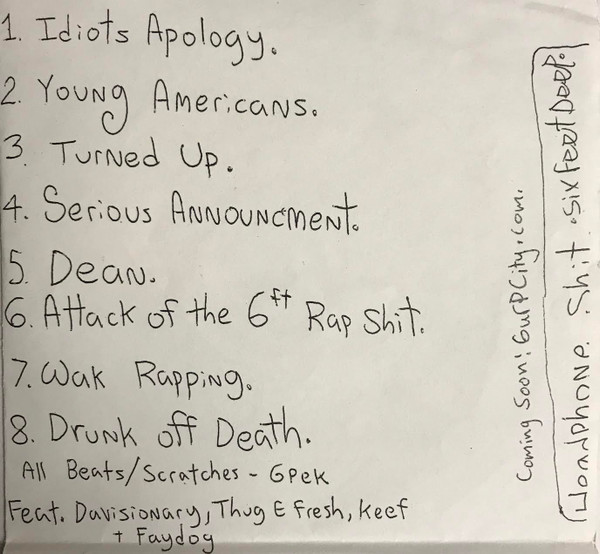 1. Idiots Apology.
2. Young Americans.
3. Turned Up.
4. Serious Announcment.
5. Dean.
6. Attack of the 6ft Rap Shit.
7. Wak Rapping.
8. Drunk off Death.
All Beats/Scratches - GPek
Feat. Davisionary, Thug E Fresh, Keef
+ Faydog
Coming Soon! GurpCity.com.
Headphone Shit. SixFeetDeep.